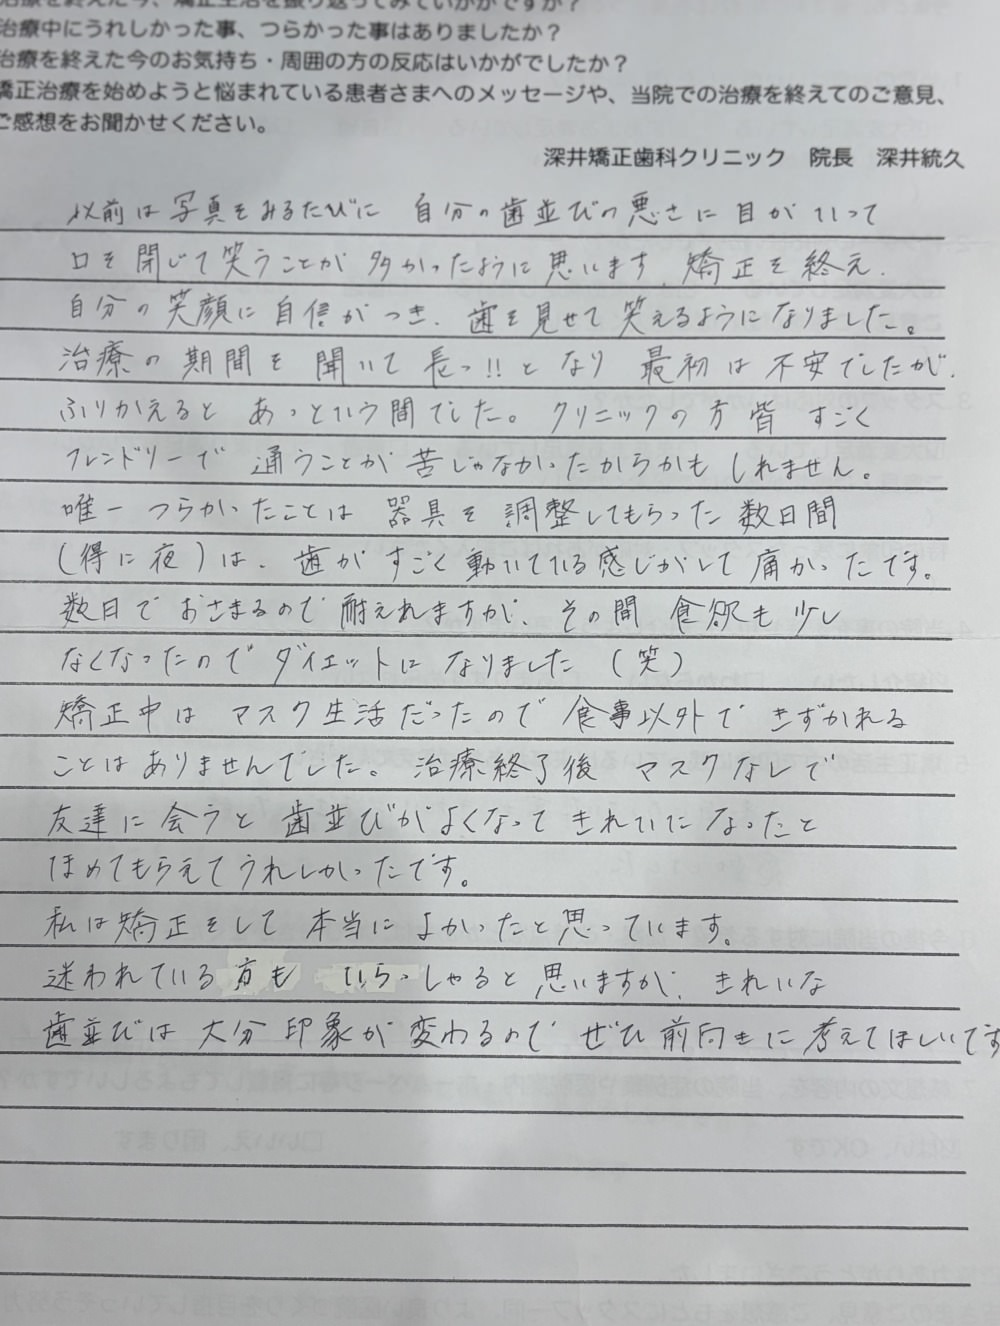 治療を終えた今、矯正生活を振り返ってみていかがですか？
治療中にうれしかった事、つらかった事はありましたか？
治療を終えた今のお気持ち・周囲の方の反応はいかがでしたか？
矯正治療を始めようと悩まれている患者さまへのメッセージや、当院での治療を終えてのご意見、
ご感想をお聞かせください。
深井矯正歯科クリニック　院長　深井統久
以前は写真をみるたびに 自分の歯並びの悪さに目がいって
口を閉じて笑うことが多かったように思います。矯正を終え、
自分の笑顔に自信がつき、歯を見せて笑えるようになりました。
治療の期間を聞いて長っ!!となり 最初は不安でしたが、
ふりかえると あっという間でした。クリニックの方皆 すごく
フレンドリーで 通うことが苦じゃなかったからかもしれません。
唯一 つらかったことは 器具を調整してもらった数日間
(得に夜)は、歯がすごく動いている感じがして痛かったです。
数日でおさまるので耐えれますが、その間 食欲も少し
なくなったのでダイエットになりました(笑)
矯正中は マスク生活だったので食事以外で きずかれる
ことはありませんでした。治療終了後 マスクなしで
友達に会うと歯並びがよくなってきれいになったと
ほめてもらえてうれしかったです。
私は矯正をして本当によかったと思っています。
迷われている方も いらっしゃると思いますが、きれいな
歯並びは 大分 印象が変わるので ぜひ前向きに考えてほしいです